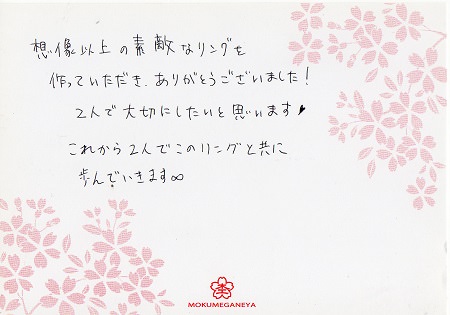 想像以上の素敵なリングを
作っていただき、ありがとうございました!
2人で大切にしたいと思います♥
これから2人でこのリングと共に
歩んでいきます∞
MOKUMEGANEYA